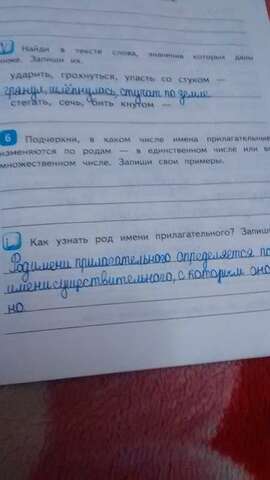 Найди в тексте слова, значения которых даны
ниже. Запиши их.
ударить, грохнуться, упасть со стуком —
шлёпнулась, стучат по земле
стегать, сечь, бить кнутом —
6 Подчеркни, в каком числе имена прилагательные
изменяются по родам — в единственном числе или во
множественном числе. Запиши свои примеры.
Как узнать род имени прилагательного? Запиши
Род имени прилагательного определяется по
имени существительного, с которым оно
но